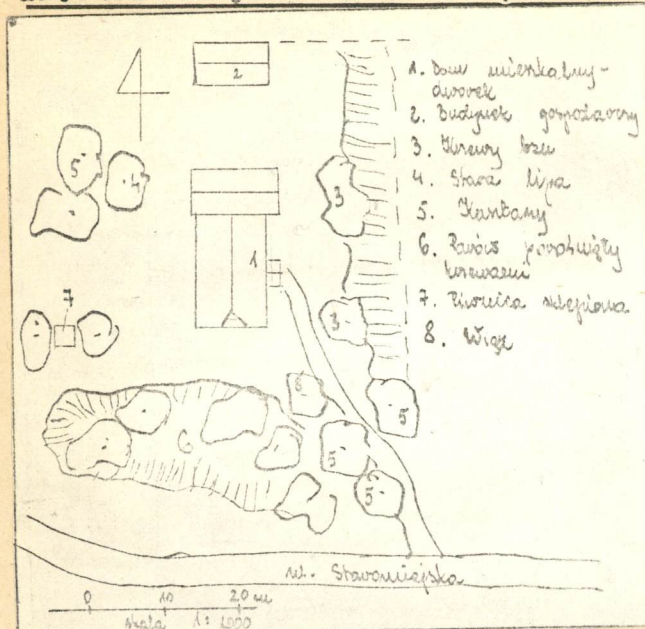 1. Dom mieszkalny-
dworek
2. Budynek gospodarczy
3. Krzewy bzu
4. Stara lipa
5. Kasztany
6. Parów porośnięty
krzewami
7. Piwnica sklepiona
8. Wiąz
2
5
4
3
1
7
3
8
5
6
5
5
ul. Staromiejska
0 10 20 m
skala 1:1000